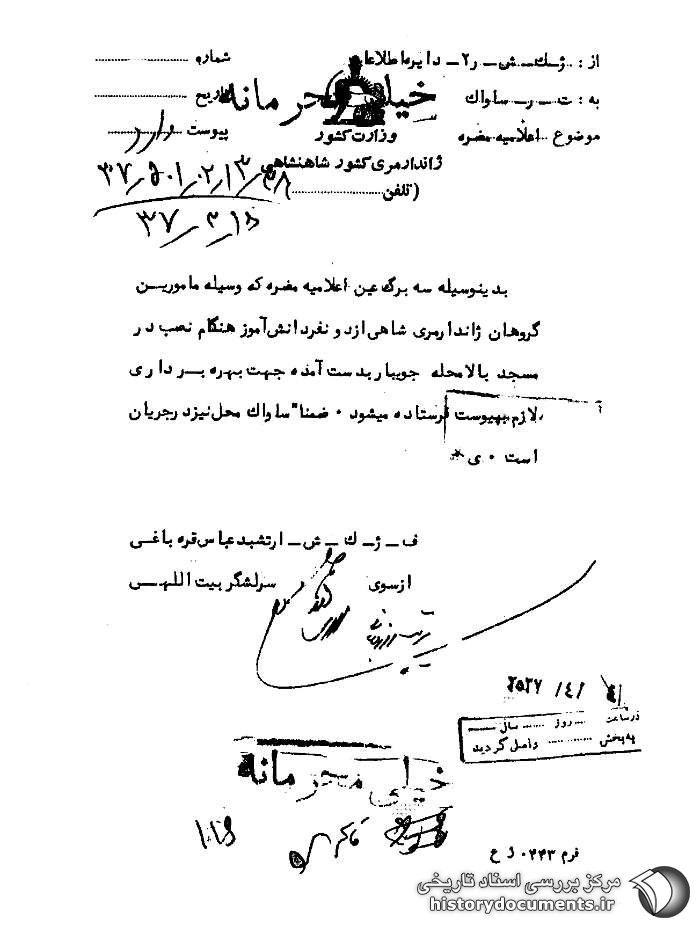 از : ژ ـ ك ـ ش ـ ر۲ ـ دایره اطلاعات
شماره
به : ت ـ ر ـ ساواك
خیلی محرمانه
تاریخ
موضوع اعلامیه مضره
وزارت کشور
پیوست دارد
ژاندارمری کشور شاهنشاهی
(تلفن)
۳۷/۳/۱۵
بدینوسیله سه برگ عین اعلامیه مضره که وسیله مامورین
گروهان ژاندارمری شاهی از دو نفر دانش‌آموز هنگام نصب در
مسجد بالامحله جویبار بدست آمده جهت بهره برداری
لازم بپیوست فرستاده میشود ۰ ضمنا" ساواك محل نیز در جریان
است ۰ ی *
ف ـ ژ ـ ك ـ ش ـ ارتشبد عباس قره باغی
از سوی سرلشگر بیت اللهی
۲۵۳۷ /٤/
در ساعت روز سال
به بخش واصل گردید
خیلی محرمانه
فرم ۰۴۴۳ ژ ع
مرکز بررسی اسناد تاریخی
historydocuments.ir